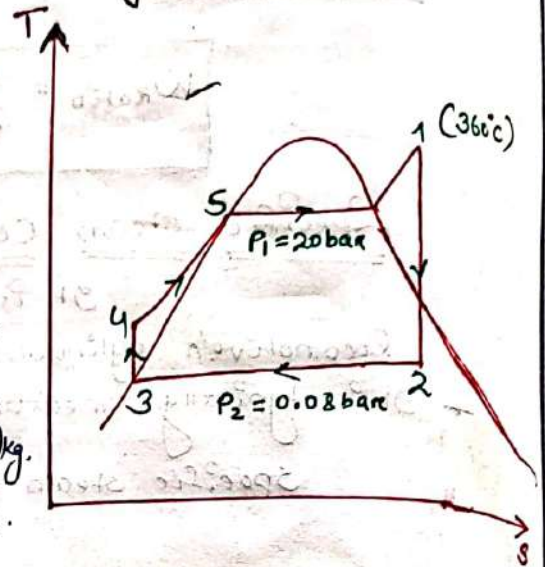 T
1 (360°C)
5
P₁ = 20 bar
4
3
P₂ = 0.08 bar
2
kg.
s